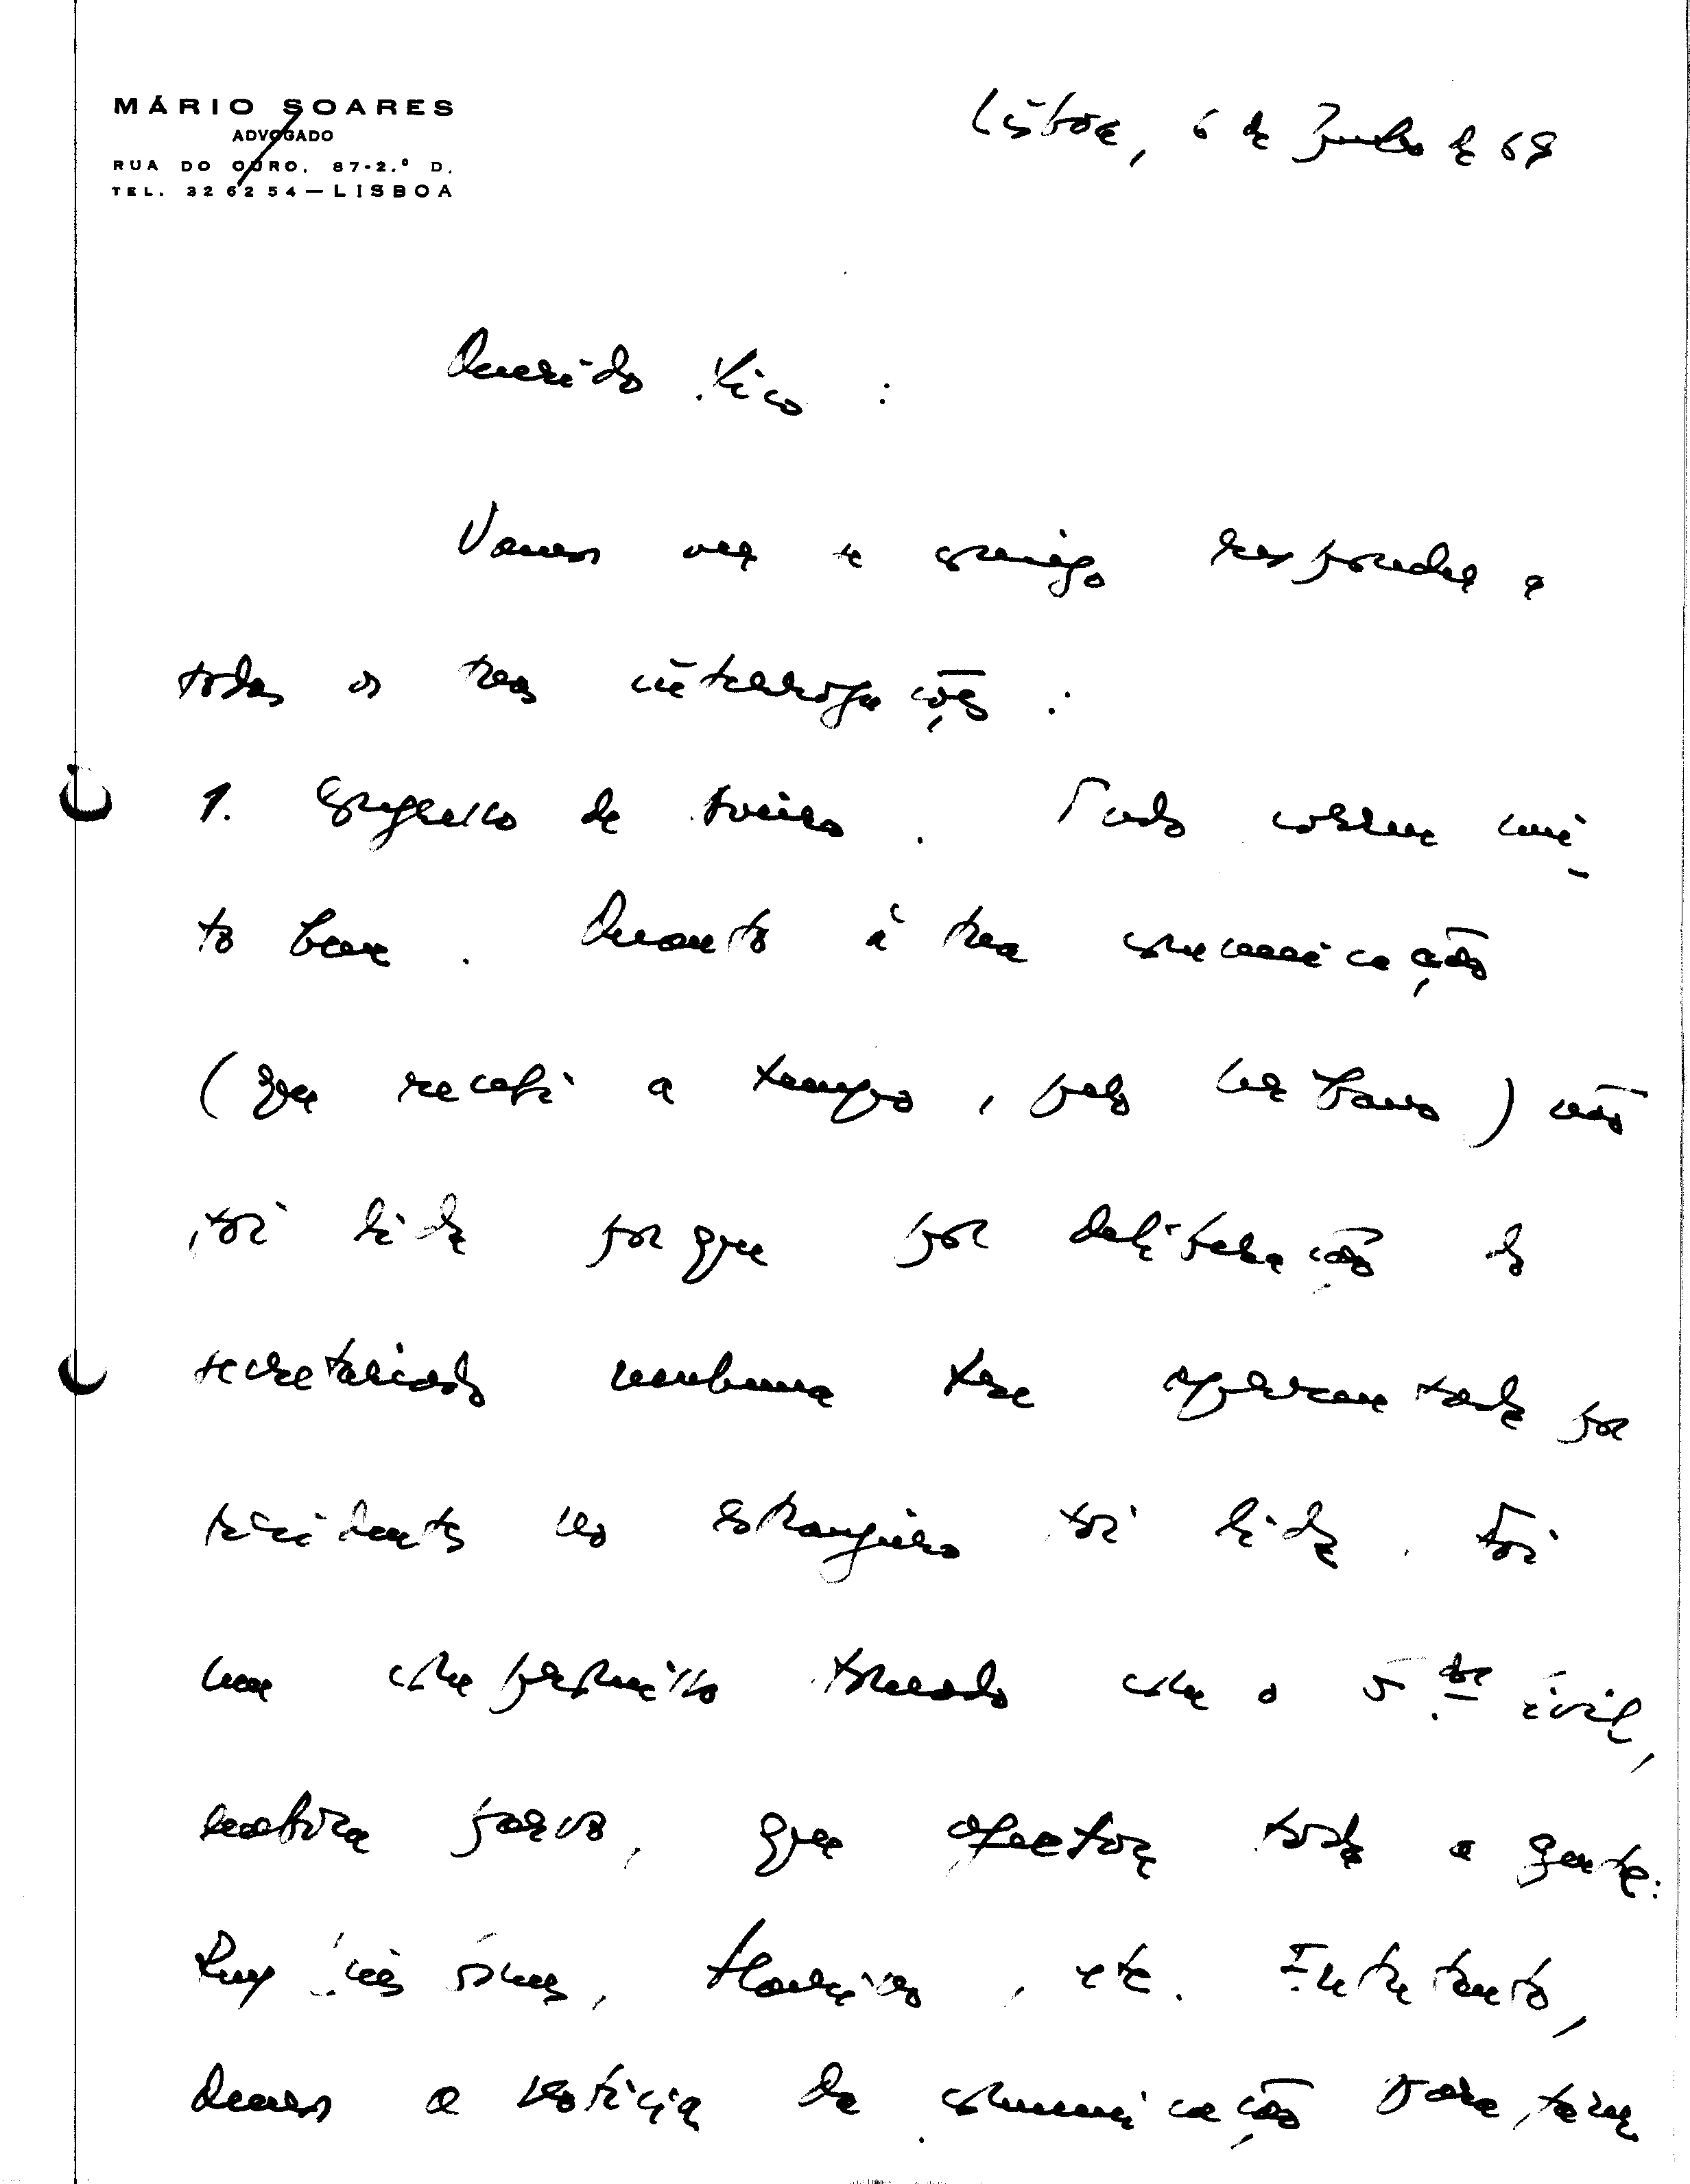 MÁRIO SOARES
ADVOGADO
RUA DO OURO, 87-2.º D.
TEL. 32 62 54 — LISBOA
Lisboa, 6 de Junho de 69
Querido Tico :
Vamos ver se consigo responder a
todas as tuas interrogações :
1. Congresso de Aveiro. Tudo correu mui-
to bem. Quanto à tua comunicação
(que recebi a tempo, pelo ) não
foi lida porque por deliberação do
secretariado nenhuma tese apresentada por
residentes no estrangeiro foi lida. Foi
um compromisso tomado com o Gov. Civil,
embora parvo, que afectou toda a gente:
Ruy Luís Gomes, , etc. Entretanto,
demos a notícia da comunicação para fora